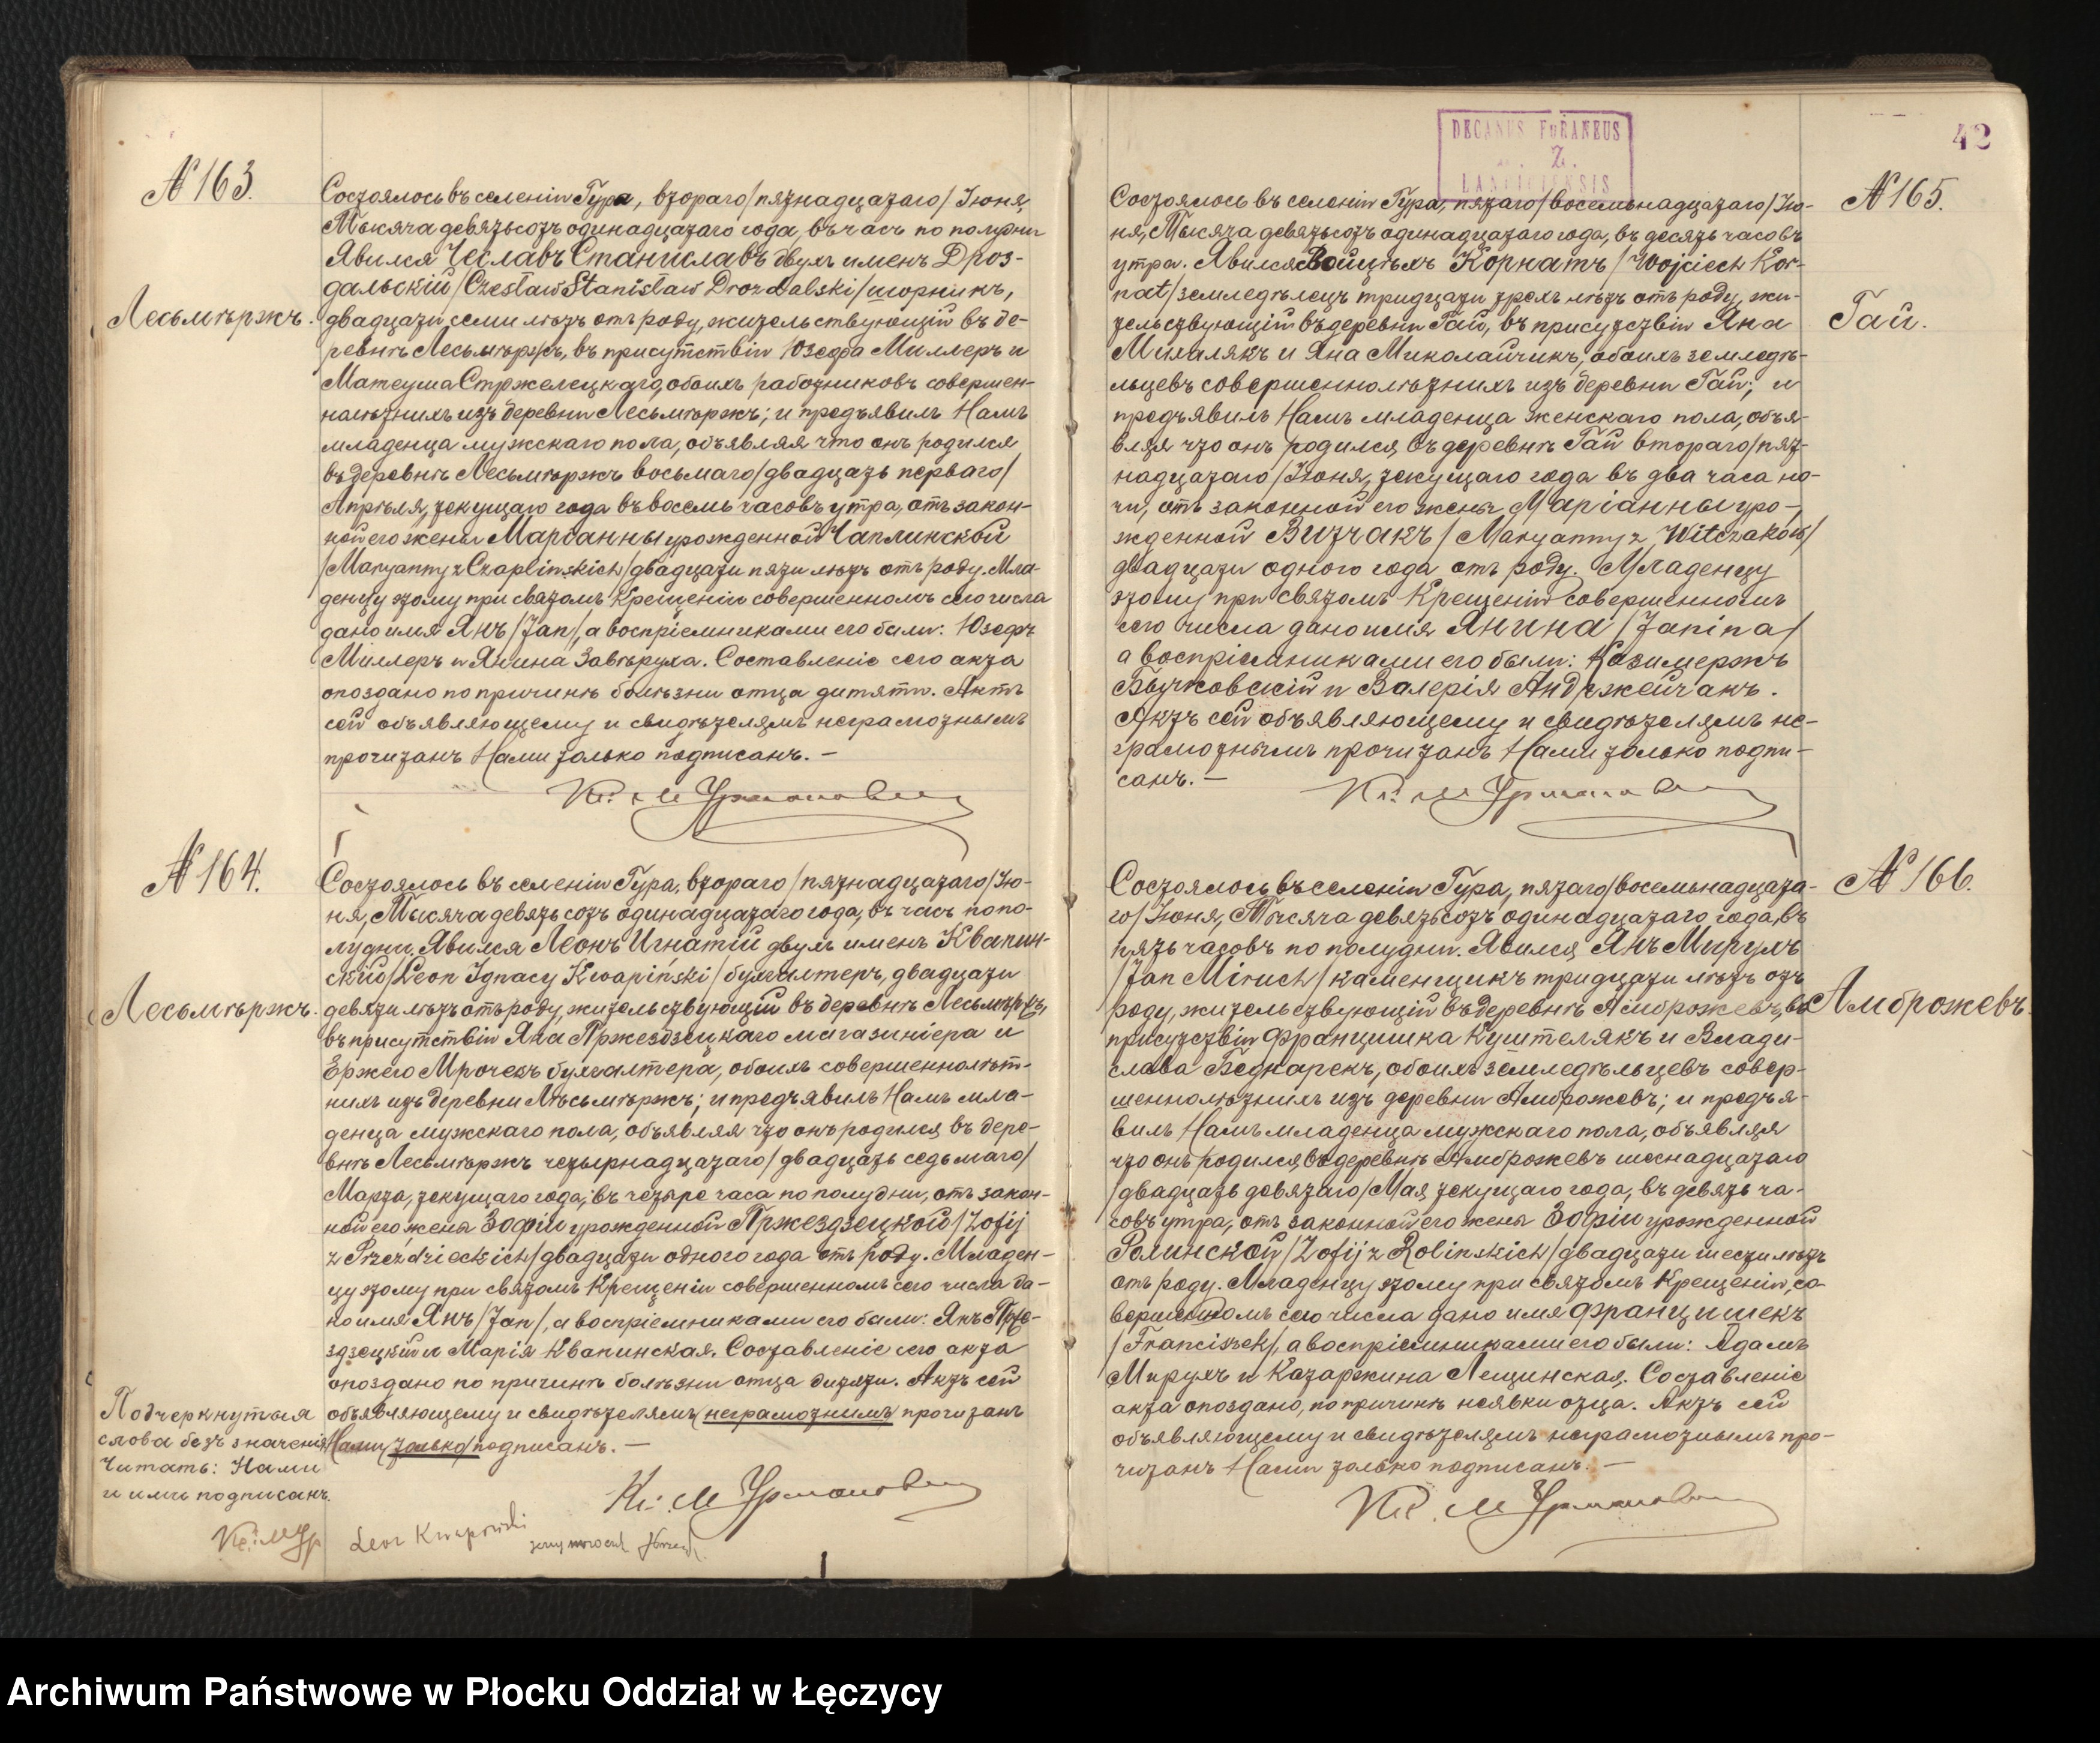 № 163.
Состоялось въ селеніи Гура, втораго /пятнадцатаго/ Іюня,
Тысяча девятьсотъ одинадцатаго года, въ часъ по полудни
Явился Чеславъ Станиславъ двухъ именъ Дроз-
дальскій /Czesław Stanisław Drozdalski/
Лесьмѣржъ.
двадцати семи лѣтъ отъ роду, жительствующій въ де-
ревнѣ Лесьмѣржъ, въ присутствіи Юзефа Миллеръ и
Матеуша Стржелецкаго, обоихъ работниковъ совершен-
нолѣтнихъ изъ деревни Лесьмѣржъ; и предъявилъ Намъ
младенца мужскаго пола, объявляя что онъ родился
въ деревнѣ Лесьмѣржъ восьмаго /двадцать перваго/
Апрѣля, текущаго года въ восемь часовъ утра, отъ закон-
ной его жены Маріанны урожденной Чаплинской
/Maryanny z Czaplinskich/ двадцати пяти лѣтъ отъ роду. Мла-
денцу этому при святомъ Крещеніи совершенномъ сего числа
дано имя Янъ /Jan/, а воспріемниками его были: Юзефъ
Миллеръ и Янина Завѣруха. Составленіе сего акта
опоздано по причинѣ болѣзни отца дитяти. Актъ
сей объявляющему и свидѣтелямъ неграмотнымъ
прочитанъ Нами только подписанъ. —
№ 164.
Состоялось въ селеніи Гура, втораго /пятнадцатаго/ Ію-
ня, Тысяча девятьсотъ одинадцатаго года, въ часъ попо-
лудни. Явился Леонъ Игнатій двухъ именъ Квапин-
скій /Leon Ignacy Kwapiński/ бухгалтеръ, двадцати
Лесьмѣржъ.
девяти лѣтъ отъ роду, жительствующій въ деревнѣ Лесьмѣржъ,
въ присутствіи Яна Пржездзецкаго магазиніера и
Ержего Мрочекъ бухгалтера, обоихъ совершеннолѣт-
нихъ изъ деревни Лѣсьмѣржъ; и предъявилъ Намъ мла-
денца мужскаго пола, объявляя что онъ родился въ дере-
внѣ Лесьмѣржъ четырнадцатаго /двадцать седьмаго/
Марта, текущаго года, въ четыре часа по полудни, отъ закон-
ной его жены Зофіи урожденной Пржездзецкой /Zofij
z Przezdzieckich/ двадцати одного года отъ роду. Младен-
цу этому при святомъ Крещеніи совершенномъ сего числа да-
но имя Янъ /Jan/, а воспріемниками его были: Янъ Прже-
здзецкій и Марія Квапинская. Составленіе сего акта
опоздано по причинѣ болѣзни отца дитяти. Актъ сей
объявляющему и свидѣтелямъ /неграмотнымъ/ прочитанъ
Нами /только/ подписанъ. —
Подчеркнутыя
слова безъ значенія
Читать: Нами
и ими подписанъ.
Leon Kwapiński
42
DECANUS FORANEUS
№ 165.
Состоялось въ селеніи Гура, пятаго /восемьнадцатаго/ Ію-
ня, Тысяча девятьсотъ одинадцатаго года, въ десять часовъ
утра. Явился Войцѣхъ Корнатъ /Wojciech Kor-
nat/ земледѣлецъ тридцати трехъ лѣтъ отъ роду, жи-
Гай.
тельствующій въ деревни Гай, въ присутствіи Яна
Михалякъ и Яна Миколайчикъ, обоихъ земледѣ-
льцевъ совершеннолѣтнихъ изъ деревни Гай; и
предъявилъ Намъ младенца женскаго пола, объя-
вляя что онъ родился въ деревнѣ Гай втораго /пят-
надцатаго/ Іюня, текущаго года въ два часа но-
чи, отъ законной его жены Маріанны уро-
жденной Витчакъ /Maryanny z Witczaków/
двадцати одного года отъ роду. Младенцу
этому при святомъ Крещеніи совершенномъ
сего числа дано имя Янина /Janina/
а воспріемниками его были: Казимержъ
Бычковскій и Валерія Андржейчакъ.
Актъ сей объявляющему и свидѣтелямъ не-
грамотнымъ прочитанъ Нами только подпи-
санъ. —
№ 166.
Состоялось въ селеніи Гура, пятаго /восемьнадцата-
го/ Іюня, Тысяча девятьсотъ одинадцатаго года, въ
пять часовъ по полудни. Явился Янъ Мирухъ
/Jan Miruch/ каменщикъ тридцати лѣтъ отъ
Амброжевъ.
роду, жительствующій въ деревнѣ Амброжевъ, въ
присутствіи Францишка Куштелякъ и Влади-
слава Беднарекъ, обоихъ земледѣльцевъ совер-
шеннолѣтнихъ изъ деревни Амброжевъ; и предъя-
вилъ Намъ младенца мужскаго пола, объявляя
что онъ родился, въ деревнѣ Амброжевъ шеснадцатаго
/двадцать девятаго/ Мая текущаго года, въ девять ча-
совъ утра, отъ законной его жены Зофіи урожденной
Ролинской /Zofij z Rolinskich/ двадцати шести лѣтъ
отъ роду. Младенцу этому при святомъ Крещеніи, со-
вершенномъ сего числа дано имя Францишекъ
/Franciszek/, а воспріемниками его были: Адамъ
Мирухъ и Катаржина Лещинская. Составленіе
акта опоздано, по причинѣ неявки отца. Актъ сей
объявляющему и свидѣтелямъ неграмотнымъ про-
читанъ Нами только подписанъ. —
Archiwum Państwowe w Płocku Oddział w Łęczycy